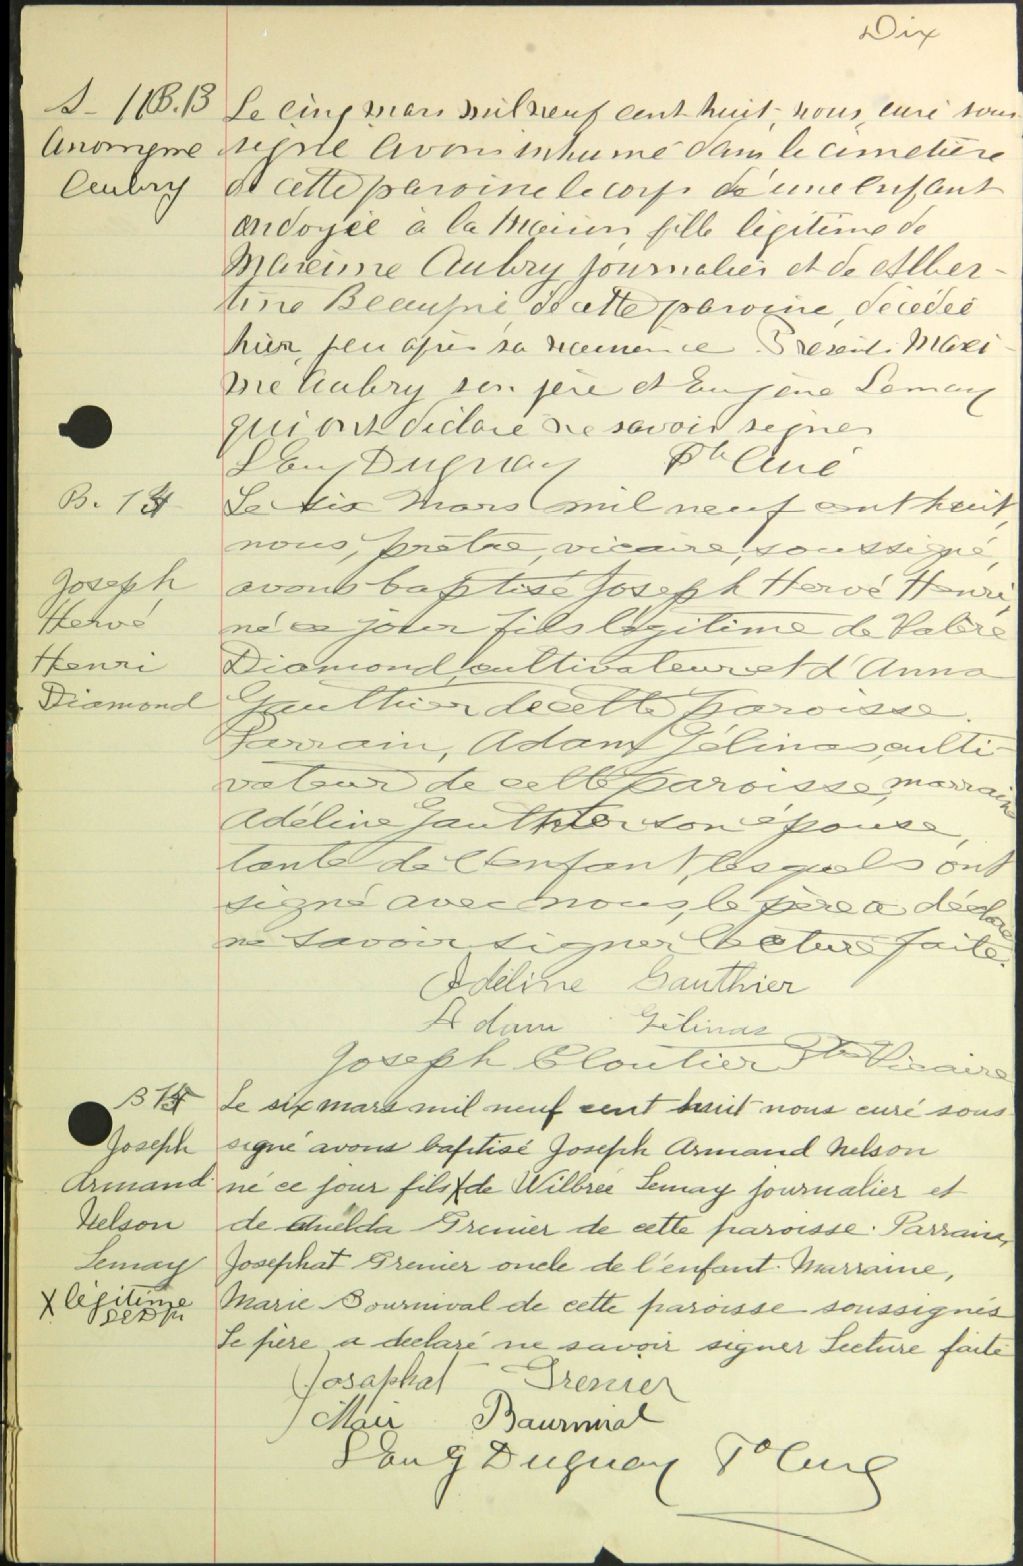 Dix
S- 11 B. 13
Anonyme
Aubry
Le cinq mars mil neuf cent huit, nous, curé sous
signé avons inhumé dans le cimetière
de cette paroisse le corps d'une enfant
ondoyée à la maison fille légitime de
Maxime Aubry journalier et de Alber-
tine Beaupré de cette paroisse, décédée
hier, peu après sa naissance. Présents Maxi-
me Aubry son père et Eugène Lemay
qui ont déclaré ne savoir signer
L Eug Duguay Ptre Curé
B. 14
Joseph
Hervé
Henri
Diamond
Le six Mars mil neuf cent huit,
nous, prêtre, vicaire, soussigné,
avons baptisé Joseph Hervé Henri,
né ce jour fils légitime de Valère
Diamond, cultivateur et d'Anna
Gauthier de cette paroisse.
Parrain, Adam Gélinas, culti-
vateur de cette paroisse, marraine
Adéline Gauthier son épouse,
tante de l'enfant, lesquels ont
signé avec nous, le père a déclaré
ne savoir signer. Lecture faite.
Adéline Gauthier
Adam Gélinas
Joseph Cloutier Ptre Vicaire
B 15
Joseph
Armand
Nelson
Lemay
X légitime
LED Ptr
Le six mars mil neuf cent huit nous curé sous
signé avons baptisé Joseph Armand Nelson
né ce jour fils X de Wilbrée Lemay journalier et
de Anelda Grenier de cette paroisse. Parrain,
Josephat Grenier oncle de l'enfant. Marraine,
Marie Bournival de cette paroisse soussignés
Le père a declaré ne savoir signer Lecture faite
Josaphat Grenier
Mari Baurnival
L Eug Duguay Ptre Curé